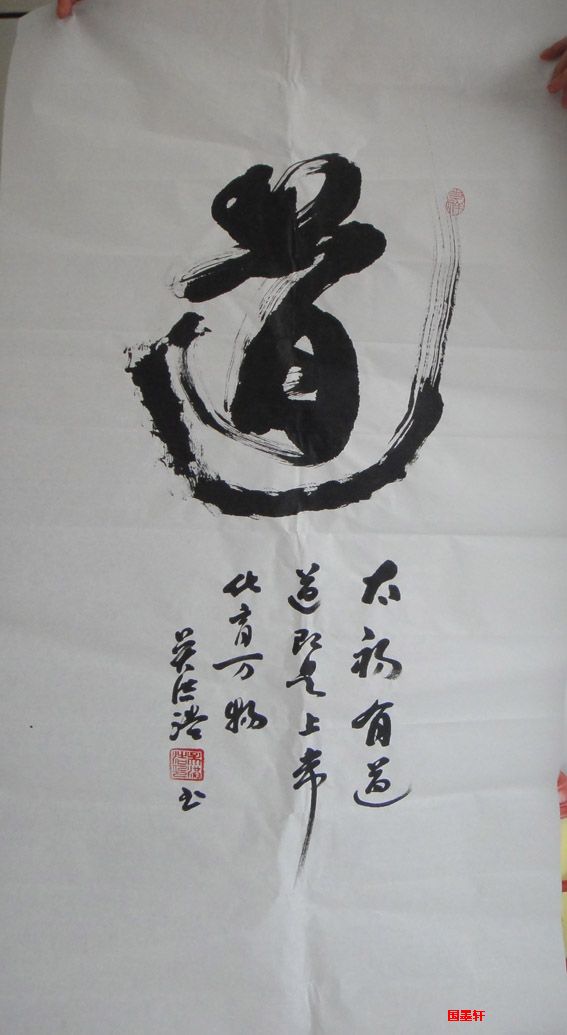 道
太初有道
道即是上帝
化育万物
书
国墨轩